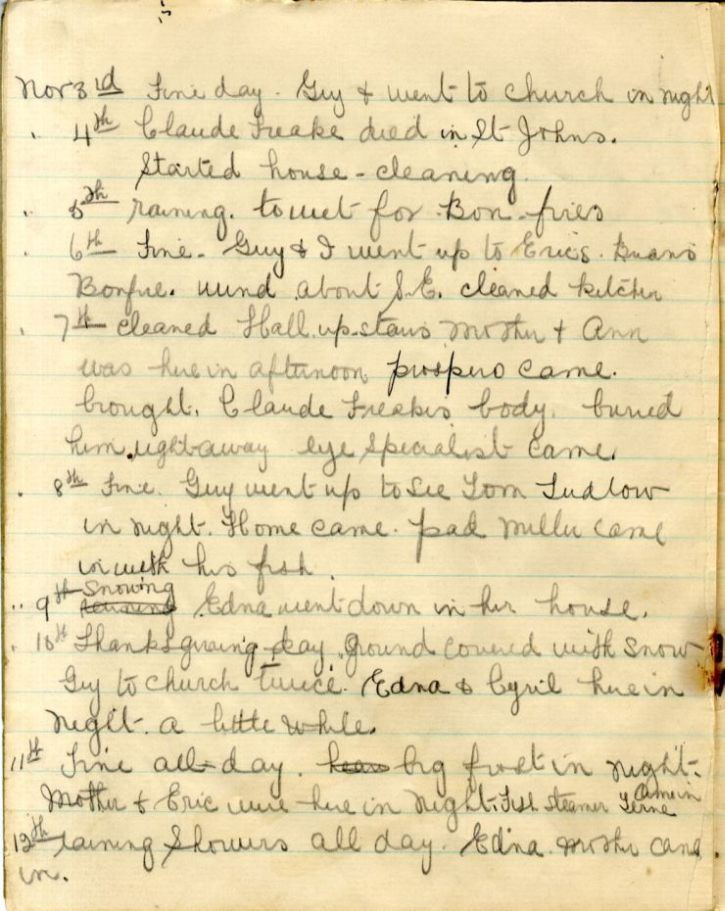 Nov 3rd Fine day. Guy & went to church in night
" 4th Claude Freake died in St Johns.
Started house-cleaning.
" 5th raining. to wet for Bon-fires
" 6th Fine. Guy & I went up to Erics.
Bonfire. wind about S.E. cleaned kitchen
" 7th cleaned Hall. up-stairs Mother & Ann
was here in afternoon prospero came.
brought. Claude Freakes body. buried
him right-away eye specialist came.
" 8th Fine. Guy went up to see Tom Ludlow
in night. Home came. pad Miller came
in with his fish.
" 9th Snowing Edna went down in her house.
" 10th Thanksgiving-day ground covered with snow
Guy to church twice. Edna & Cyril here in
night. a little while.
11th Fine all-day. big frost in night.
Mother & Eric were here in night. Fish steamer came in
12th raining showers all day. Edna. Mother came
in.